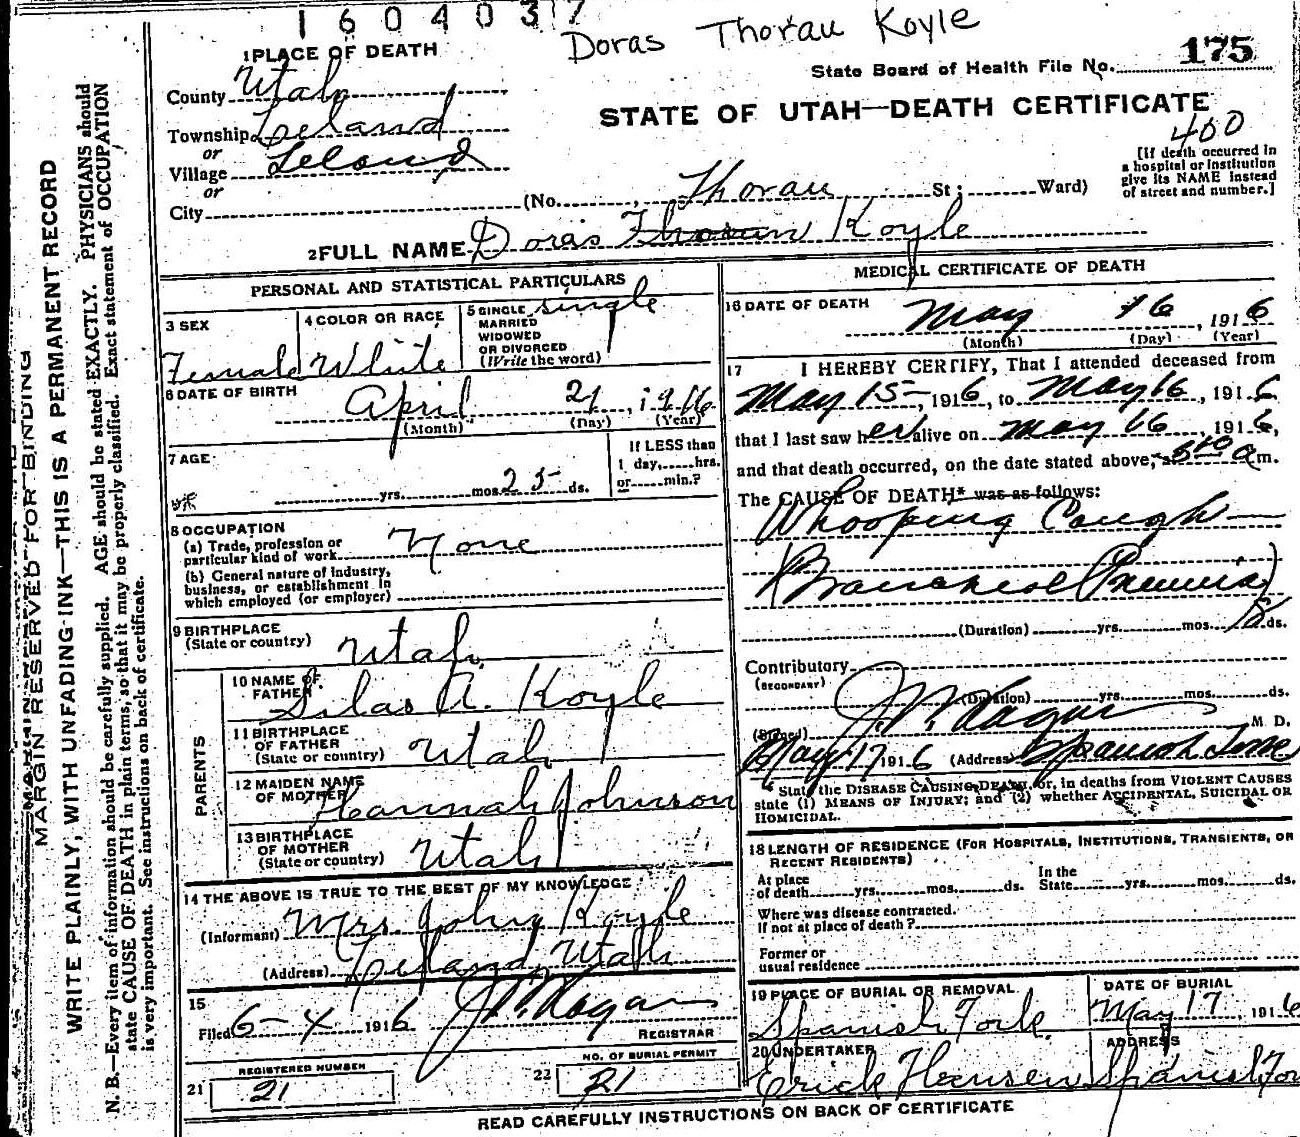 1604037
Doras Thorau Koyle
1 PLACE OF DEATH
State Board of Health File No. 175
County Utah
STATE OF UTAH—DEATH CERTIFICATE
400
Township Leland
or
Village Leland
or
City
(No. Thorau St; Ward)
[If death occurred in
a hospital or institution
give its NAME instead
of street and number.]
2 FULL NAME Doras Thorau Koyle
PERSONAL AND STATISTICAL PARTICULARS
3 SEX
Female
4 COLOR OR RACE
White
5 SINGLE single
MARRIED
WIDOWED
OR DIVORCED
(Write the word)
6 DATE OF BIRTH
April 21, 1916
(Month) (Day) (Year)
7 AGE
yrs. mos. 25 ds.
If LESS than
1 day, hrs.
or min.?
8 OCCUPATION
(a) Trade, profession or
particular kind of work None
(b) General nature of industry,
business, or establishment in
which employed (or employer)
9 BIRTHPLACE
(State or country) Utah
PARENTS
10 NAME OF
FATHER Silas A. Koyle
11 BIRTHPLACE
OF FATHER
(State or country) Utah
12 MAIDEN NAME
OF MOTHER Hannah Johnson
13 BIRTHPLACE
OF MOTHER
(State or country) Utah
14 THE ABOVE IS TRUE TO THE BEST OF MY KNOWLEDGE
(Informant) Mrs. John Koyle
(Address) Leland, Utah
15
Filed 6-4 1916 REGISTRAR
21 REGISTERED NUMBER
21
22 NO. OF BURIAL PERMIT
21
MEDICAL CERTIFICATE OF DEATH
16 DATE OF DEATH
May 16, 1916
(Month) (Day) (Year)
17 I HEREBY CERTIFY, That I attended deceased from
May 15, 1916, to May 16, 1916
that I last saw her alive on May 16, 1916,
and that death occurred, on the date stated above, m.
The CAUSE OF DEATH* was as follows:
Whooping Cough
(Duration) yrs. mos. ds.
Contributory
(SECONDARY)
(Duration) yrs. mos. ds.
(Signed) M. D.
May 17 1916 (Address) Spanish Fork
* State the DISEASE CAUSING DEATH, or, in deaths from VIOLENT CAUSES
state (1) MEANS OF INJURY; and (2) whether ACCIDENTAL, SUICIDAL OR
HOMICIDAL.
18 LENGTH OF RESIDENCE (FOR HOSPITALS, INSTITUTIONS, TRANSIENTS, OR
RECENT RESIDENTS)
At place
of death yrs. mos. ds.
In the
State yrs. mos. ds.
Where was disease contracted.
if not at place of death?
Former or
usual residence
19 PLACE OF BURIAL OR REMOVAL
Spanish Fork.
DATE OF BURIAL
May 17, 1916
20 UNDERTAKER
Erick Hansen
ADDRESS
Spanish For
READ CAREFULLY INSTRUCTIONS ON BACK OF CERTIFICATE
MARGIN RESERVED FOR BINDING
WRITE PLAINLY, WITH UNFADING INK—THIS IS A PERMANENT RECORD
N. B.—Every item of information should be carefully supplied. AGE should be stated EXACTLY. PHYSICIANS should
state CAUSE OF DEATH in plain terms, so that it may be properly classified. Exact statement of OCCUPATION
is very important. See instructions on back of certificate.